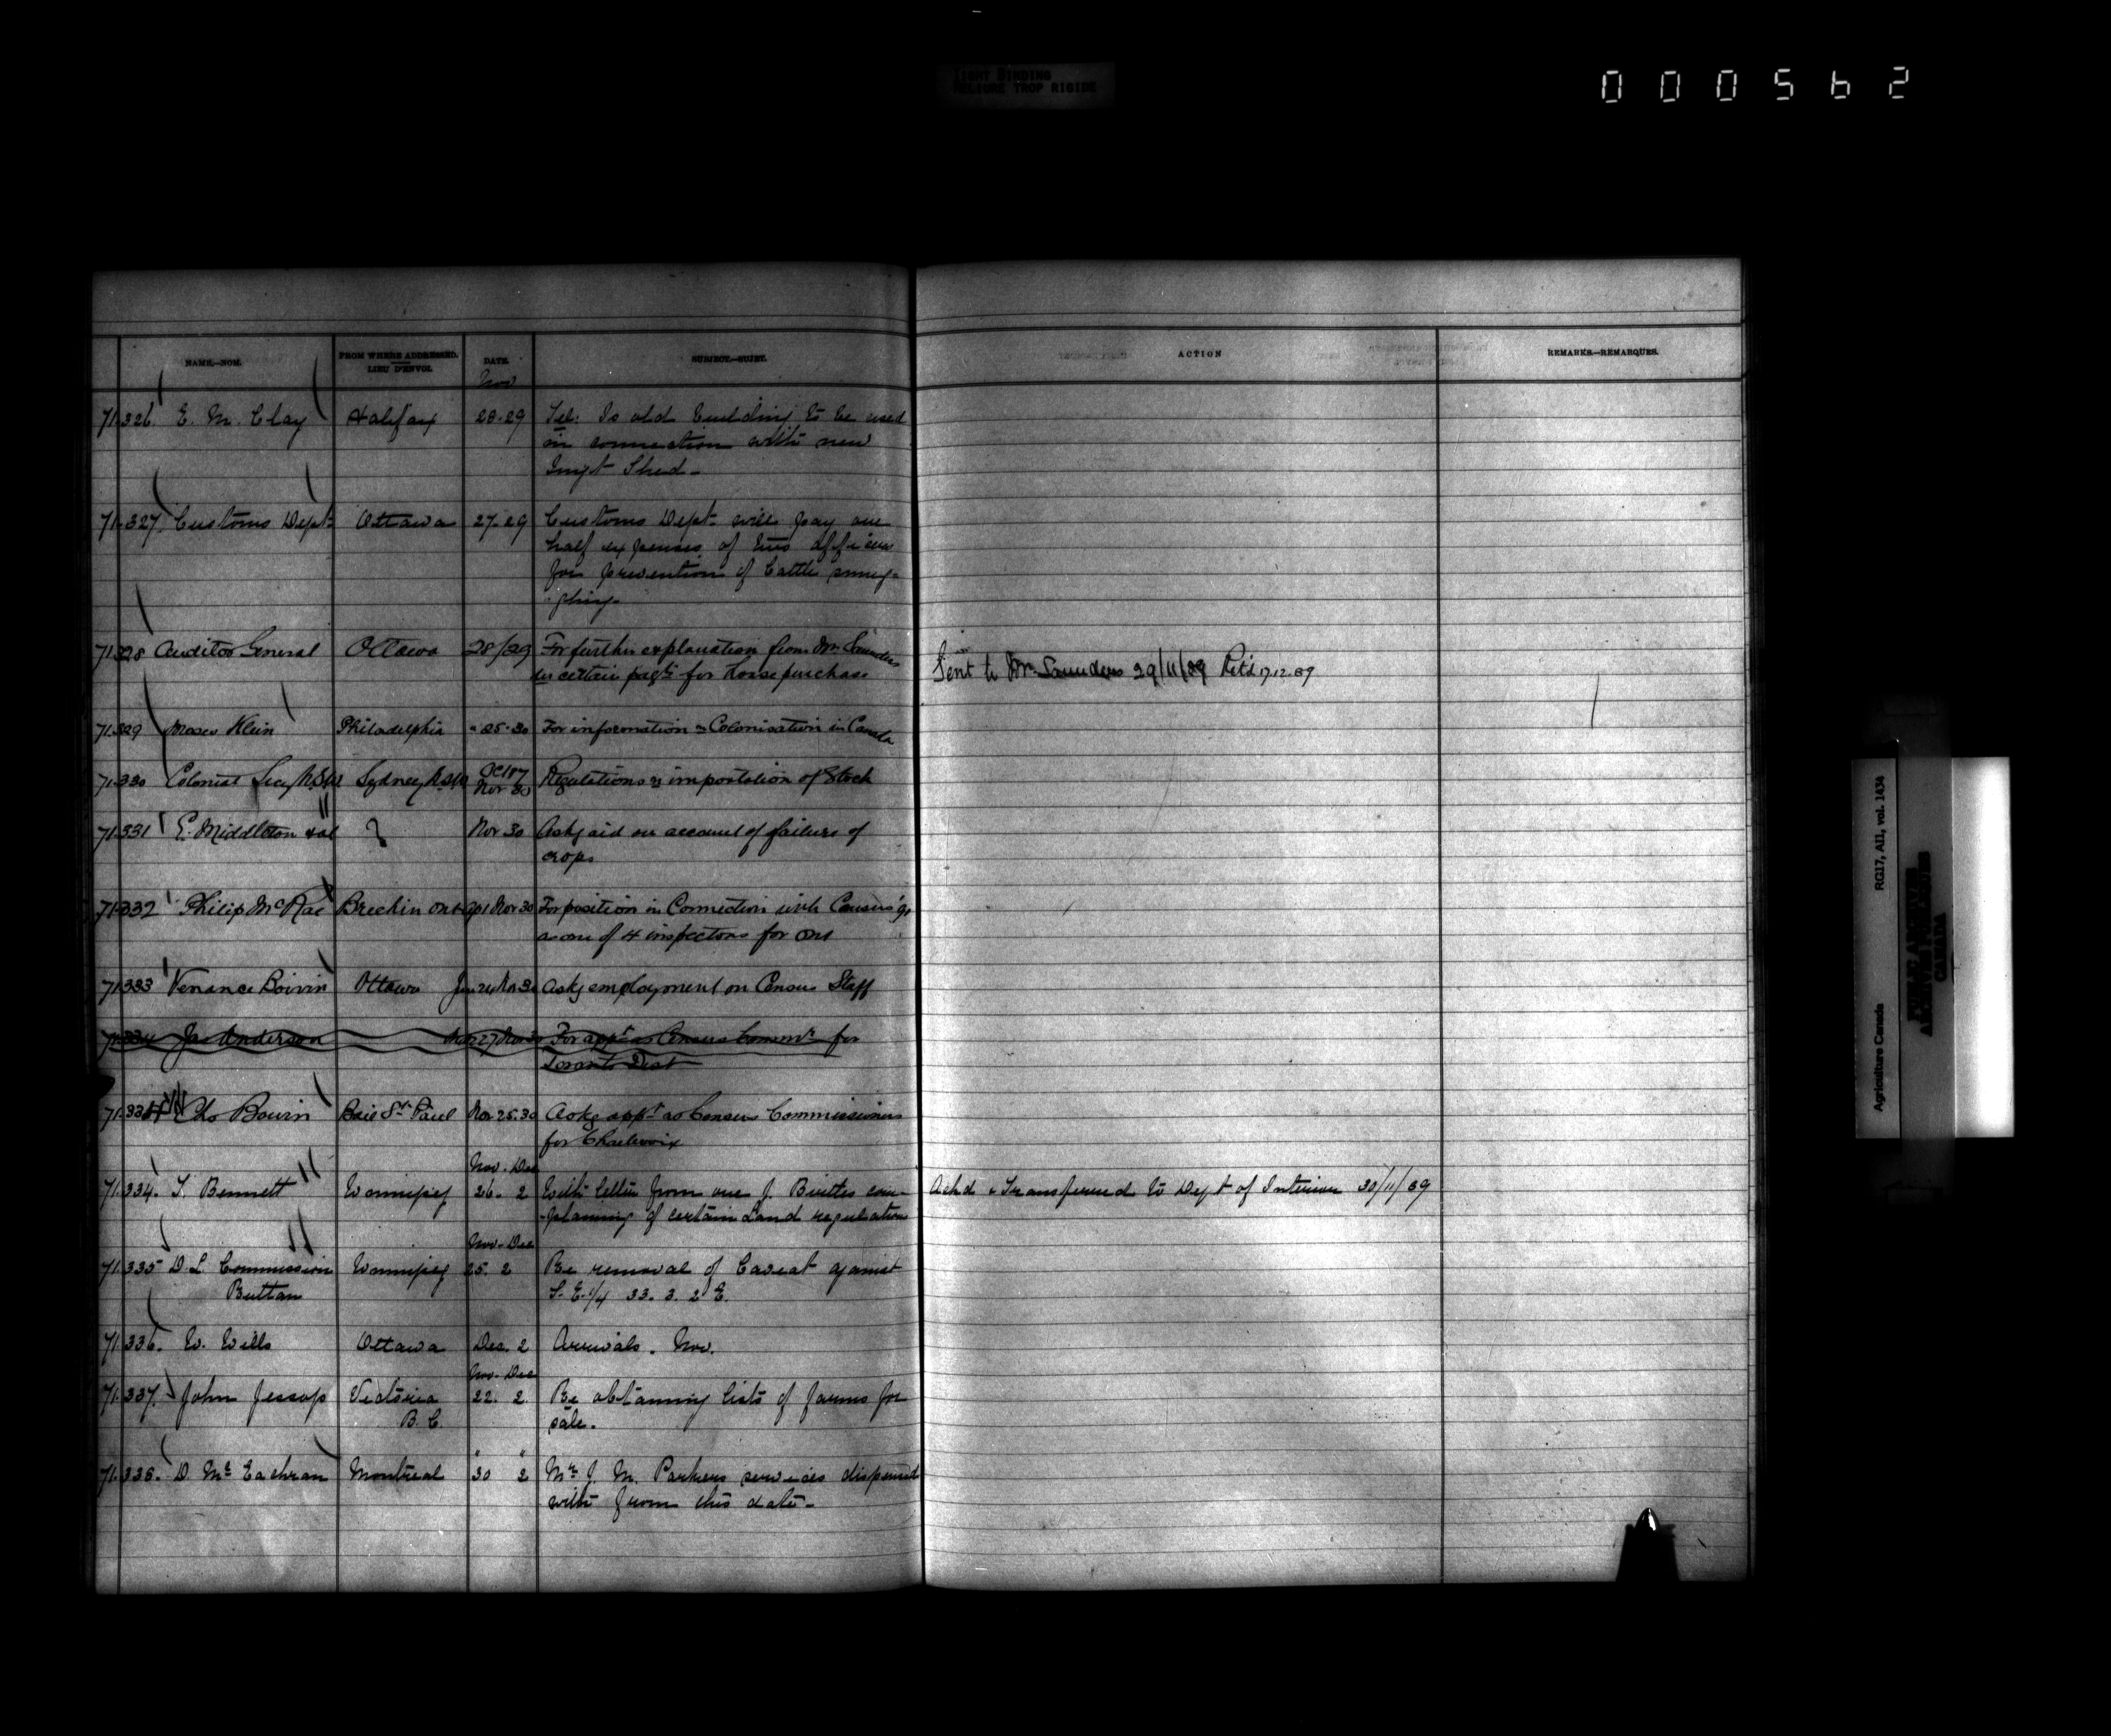 TIGHT BINDING
RELIURE TROP RIGIDE
000562
NAME.—NOM.
FROM WHERE ADDRESSED.
LIEU D'ENVOI.
DATE.
SUBJECT.—SUJET.
ACTION
REMARKS.—REMARQUES.
Nov
71.326. E. M. Clay Halifax 28.29 Tel: Is old building to be used
in connection with new
Imgt Shed-
71.327. Customs Dept Ottawa 27.29 Customs Dept will pay one
half expenses of two officers
for prevention of Cattle smug-
gling.
71328 Auditor General Ottawa 28/29 For further explanation from Mr Saunders
certain for horse purchase
Sent to Mr. Saunders 29/11/89 Ret'd 17.12.89
71.329 Moses Klein Philadelphia " 25.30 For information re Colonisation in Canada
71.330 Colonial Secy N.S.W Sydney N.S.W Oct 87 Nov 30 Regulations re importation of Stock
71.331 E. Middleton & al ? Nov 30 Asks aid on account of failure of
crops
71.332 Philip McRae Brechin Ont Nov 30 For position in Connection with Census
as one of 4 inspectors for Ont
71.333 Venance Boivin Ottawa Jan 24 Nov 30 Asks employment on Census Staff
71.334 Jas Anderson 27 Nov 30 For appt as Census Commr for
Toronto Dist
Boivin Baie St. Paul Nov 25.30 Asks appt as Census Commissioner
for Charlevoix
Nov. Dec
71.334. T. Bennett Winnipeg 26. 2 With letter from one J. com-
-plaining of certain Land regulations
Ackd & Transferred to Dept of Interior 30/11/89
Nov. Dec
71.335 D. L. Commission Winnipeg 25. 2 Re removal of Caveat against
Ruttan S. E. 1/4 33. 3. 2 E.
71.336. W. Wills Ottawa Dec. 2 Arrivals. Nov.
Nov. Dec
71.337. John Jessop Victoria 22. 2. Re obtaining lists of farms for
B. C. sale.
71.338. D. McEachran Montreal " 30 " 2 Mr J. M. Parkers services dispensed
with from this date-
RG17, AI1, vol. 1434
Agriculture Canada
PUBLIC ARCHIVES
ARCHIVES PUBLIQUES
CANADA